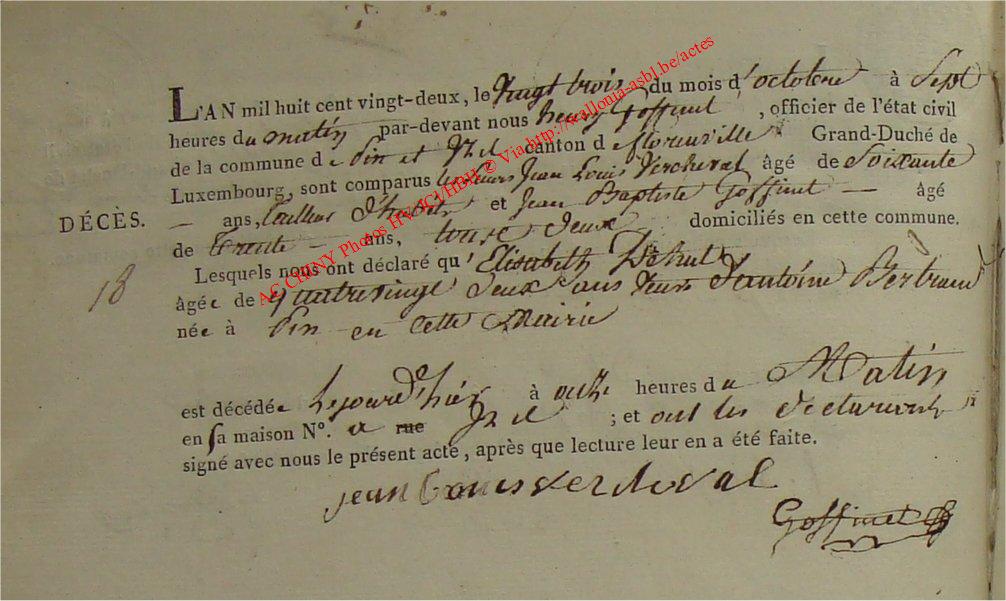 L'AN mil huit cent vingt-deux, le vingt trois du mois d'octobre à Sept
heures du matin par-devant nous henry Goffinet, officier de l'état civil
de la commune de Pin et Izel canton de florenville Grand-Duché de
Luxembourg, sont comparus les sieurs Jean Louis Vercheval âgé de Soixante
DÉCÈS. — ans, tailleur d'habits et Jean Baptiste Goffinet — âgé
de trente — ans, tous deux domiciliés en cette commune.
Lesquels nous ont déclaré qu'Elisabeth
18
âgée de quatrevingt deux ans veuve d'antoine Bertrand
née à Pin en cette Mairie
est décédée le jour d'hier à onze heures du Matin
en sa maison N°. a rue Izel ; et ont les declarants
signé avec nous le présent acte, après que lecture leur en a été faite.
jean louis vercheval
Goffinet
AC CHINY Photos HVJCI/HBH © Via http://wallonia-asbl.be/actes